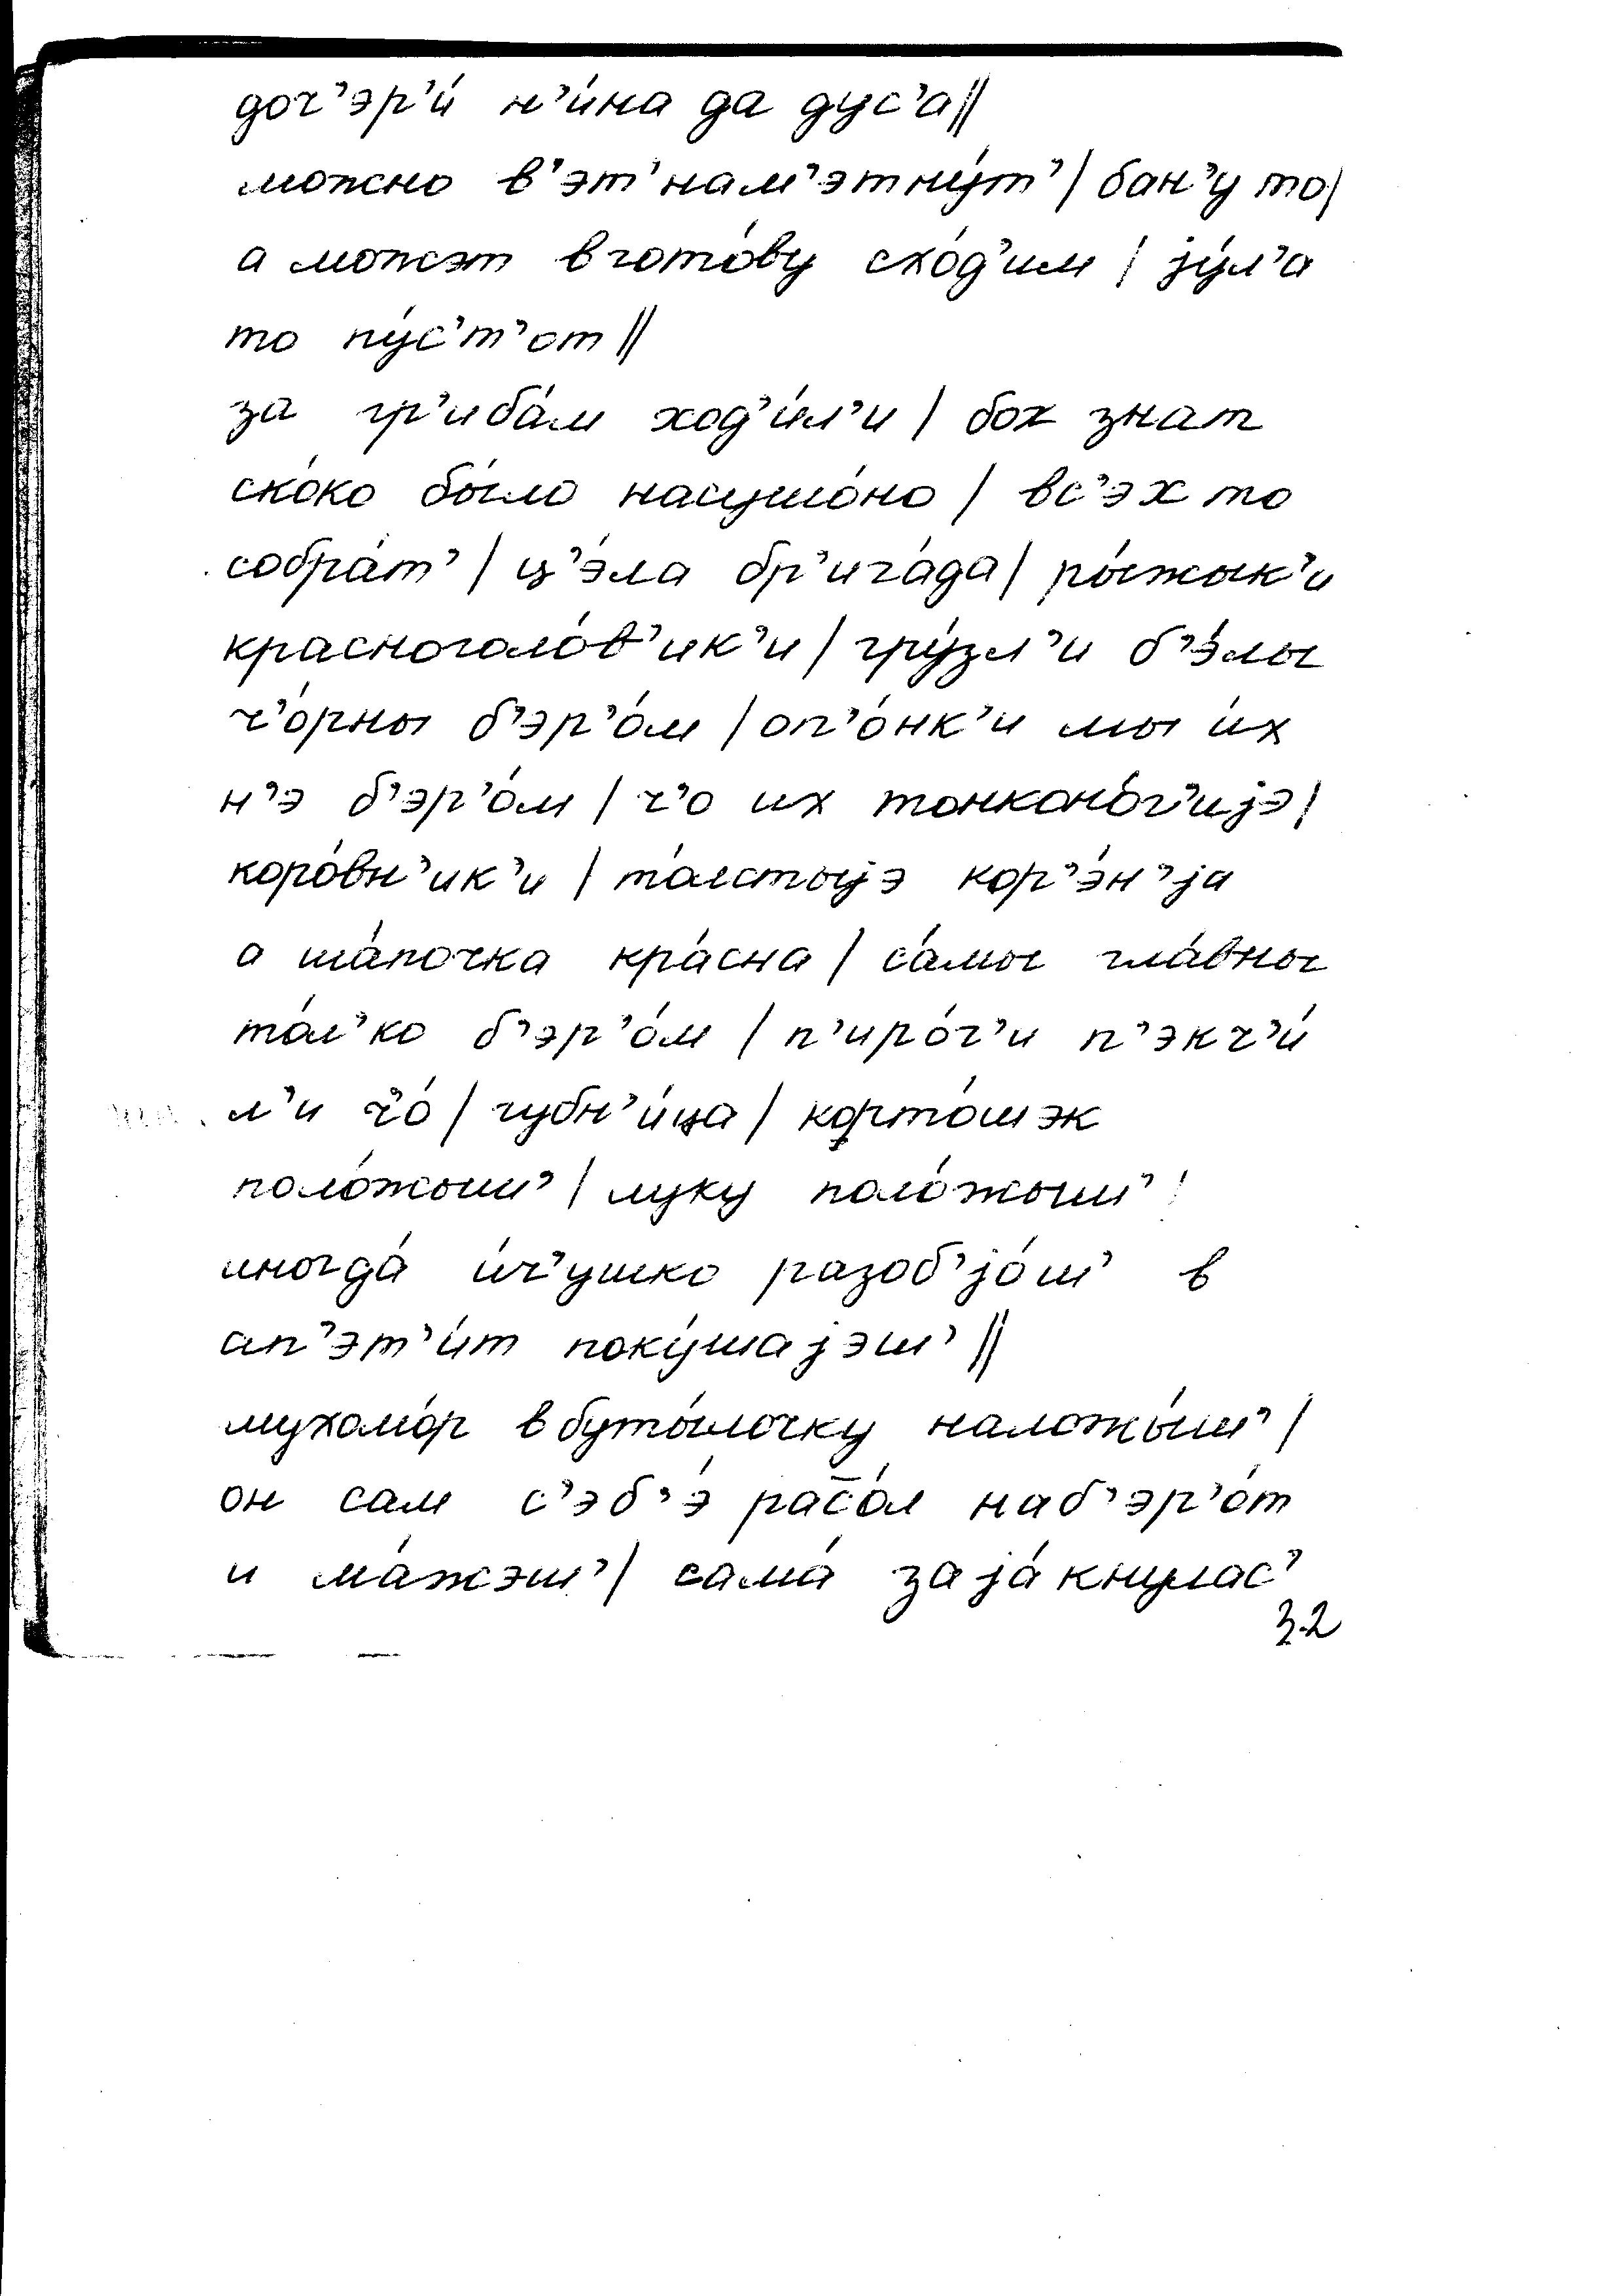 доч’эр’и́ н’и́на да дус’а||
можно в’эт’нам’этну́т’| бан’у то|
а можэт вгото́ву схо́д’им | jу́л’а
то пу́с’т’от ||
за гр’иба́м ход’и́л’и | бох знат
ско́ко бы́ло насушо́но | вс’эх то
собра́т’ | ц’э́ла бр’ига́да | ры́жык’и
красноголо́в’ик’и | гру́зл’и б’э́лы
ч’о́рны б’эр’о́м | оп’о́нк’и мы и́х
н’э б’эр’о́м | ч’о их тонконо́г’иjэ |
коро́вн’ик’и | то́лстыjэ кор’э́н’jа
а ша́почка кра́сна | са́мы гла́вны
то́л’ко б’эр’о́м | п’иро́г’и п’экч’и́
л’и ч’о́ | губн’и́ца | корто́шэк
поло́жыш’ | луку поло́жыш’ |
иногда́ и́ич’ушко разоб’jо́ш’ в
ап’эт’и́т поку́шаjэш’ ||
мухомо́р вбуты́лочку наложы́ш’ |
он сам с’эб’э́ рас̄о́л наб’эр’о́т
и ма́жэш’ | сама́ заjа́кнулас’
32